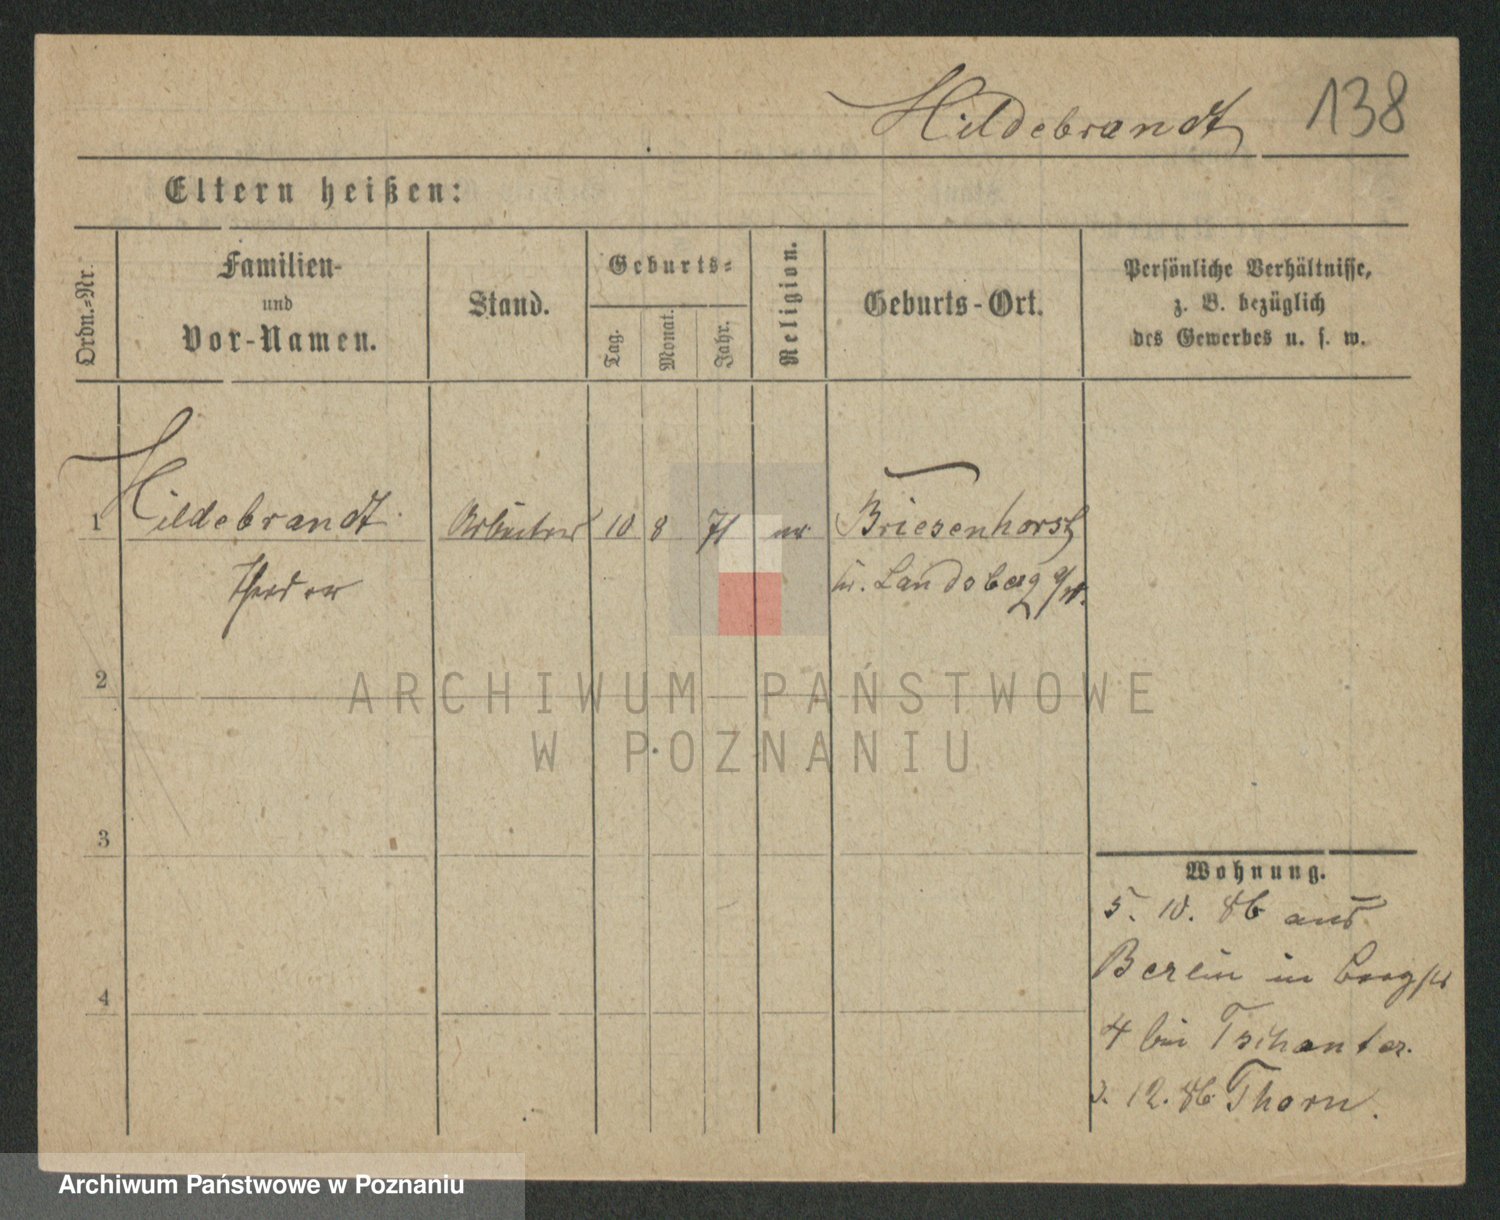 Hildebrandt 138
Eltern heißen:
Ordn.-Nr.
Familien-
und
Vor-Namen.
Stand.
Geburts-
Tag.
Monat.
Jahr.
Religion.
Geburts-Ort.
Persönliche Verhältnisse,
z. B. bezüglich
des Gewerbes u. s. w.
1 Hildebrandt Arbeiter 10 8 71 ev Briesenhorst
Theodor Kr. Landsberg a/W.
2
ARCHIWUM PAŃSTWOWE
W POZNANIU
3
Wohnung.
5. 10. 86 aus
Berlin in Bergstr
4
4 bei Tschanter.
12. 86 Thorn.
Archiwum Państwowe w Poznaniu